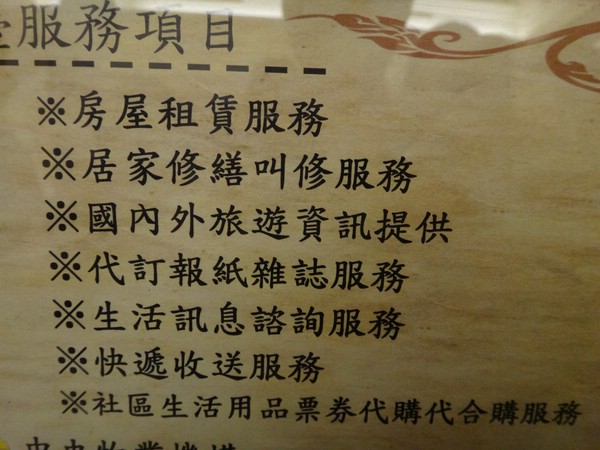 服務項目
※房屋租賃服務
※居家修繕叫修服務
※國內外旅遊資訊提供
※代訂報紙雜誌服務
※生活訊息諮詢服務
※快遞收送服務
※社區生活用品票券代購代合購服務